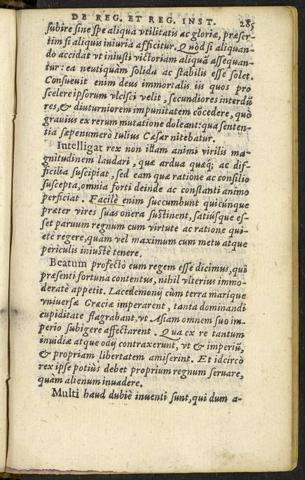 DE REG. ET REG. INST. 285
subire sine spe aliqua vtilitatis ac gloriæ, præser-
tim si aliquas iniuria afficitur. Quòd si aliquan-
do accidat vt iniusti victoriam aliquã assequan-
tur: ea neutiquàm solida ac stabilis esse solet.
Consueuit enim deus immortalis iis quos pro
scelere ipsorum vlcisci velit, secundiores interdũ
res, & diuturniorem impunitatem cõcedere, quò
grauius ex rerum mutatione doleant: qua senten-
tia sæpenumerò Iulius Cæsar nitebatur.
Intelligat rex non istam animi virilis ma-
gnitudinem laudari, quæ ardua quæq; ac dif-
ficilia suscipiat, sed eam quæ ratione ac consilio
suscepta, omnia forti deinde ac constanti animo
perficiat. Facilè enim succumbunt quicũnque
præter vires suas onera sustinent, satiúsque es-
set paruum regnum cum virtute ac ratione qui-
etè regere, quàm vel maximum cum metu atque
periculis iniustè tenere.
Beatum profectò eum regem esse dicimus, qui
præsenti fortuna contentus, nihil vlterius immo-
deratè appetit. Lacedæmonij cùm terra marique
vniuersæ Græciæ imperarent, tanta dominandi
cupiditate flagrabant, vt Asiam omnem suo im-
perio subigere affectarent. Qua ex re tantum
inuidiæ atque odij contraxerunt, vt & imperiũ,
& propriam libertatem amiserint. Et idcircò
rex ipse potiùs debet proprium regnum seruare,
quàm alienum inuadere.
Multi haud dubiè inuenti sunt, qui dum a-